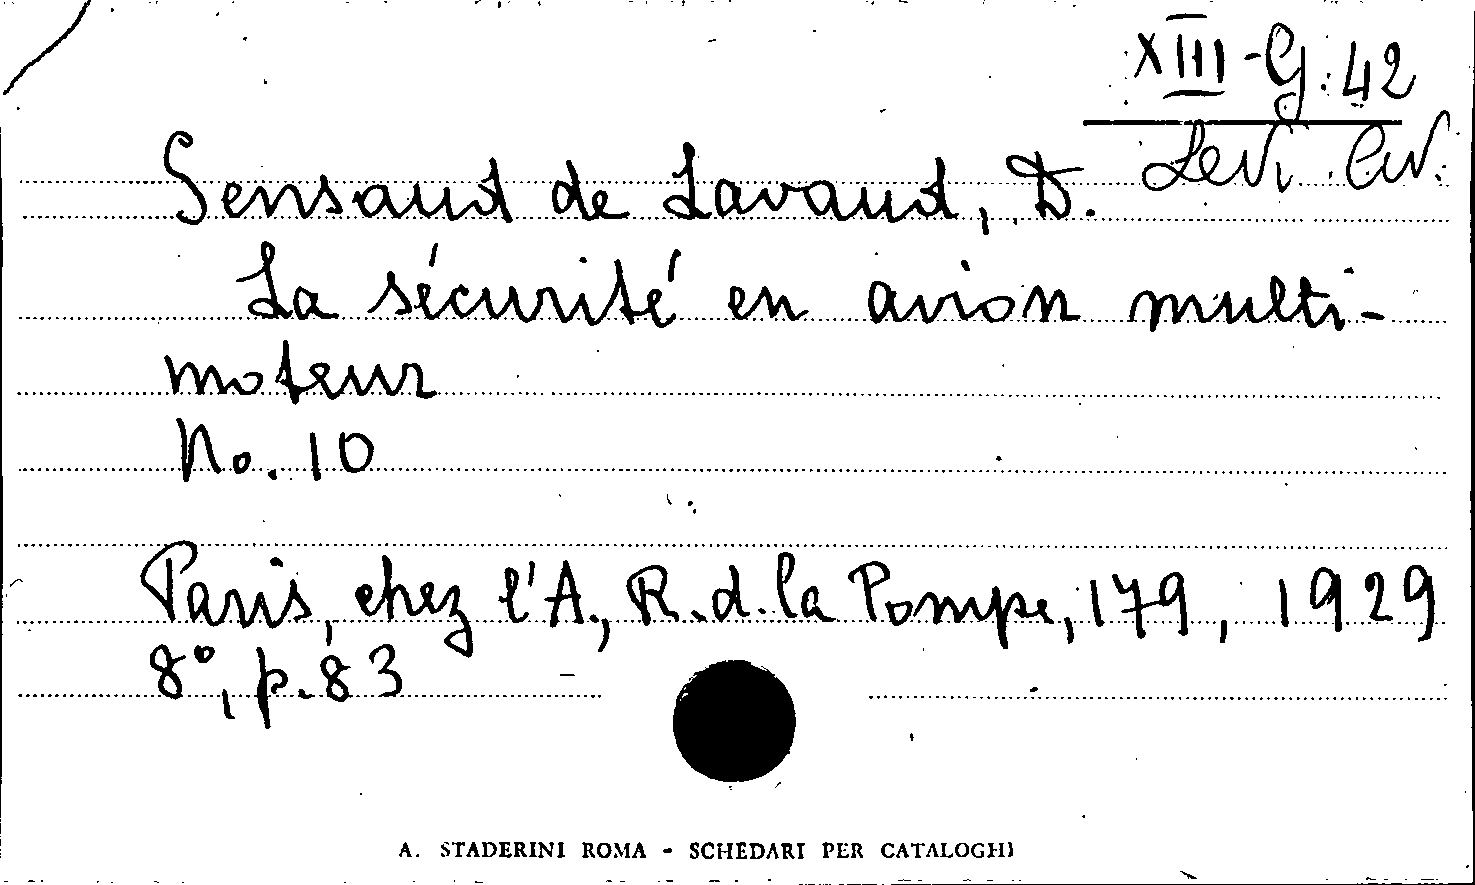 XIII-G.42
Levi Civ.
Sensaud de Lavaud, D.
La sécurité en avion multi-
moteur
No. 10
Paris, chez l'A., R. d. la Pompe, 179, 1929
8°, p. 83
A. STADERINI ROMA - SCHEDARI PER CATALOGHI